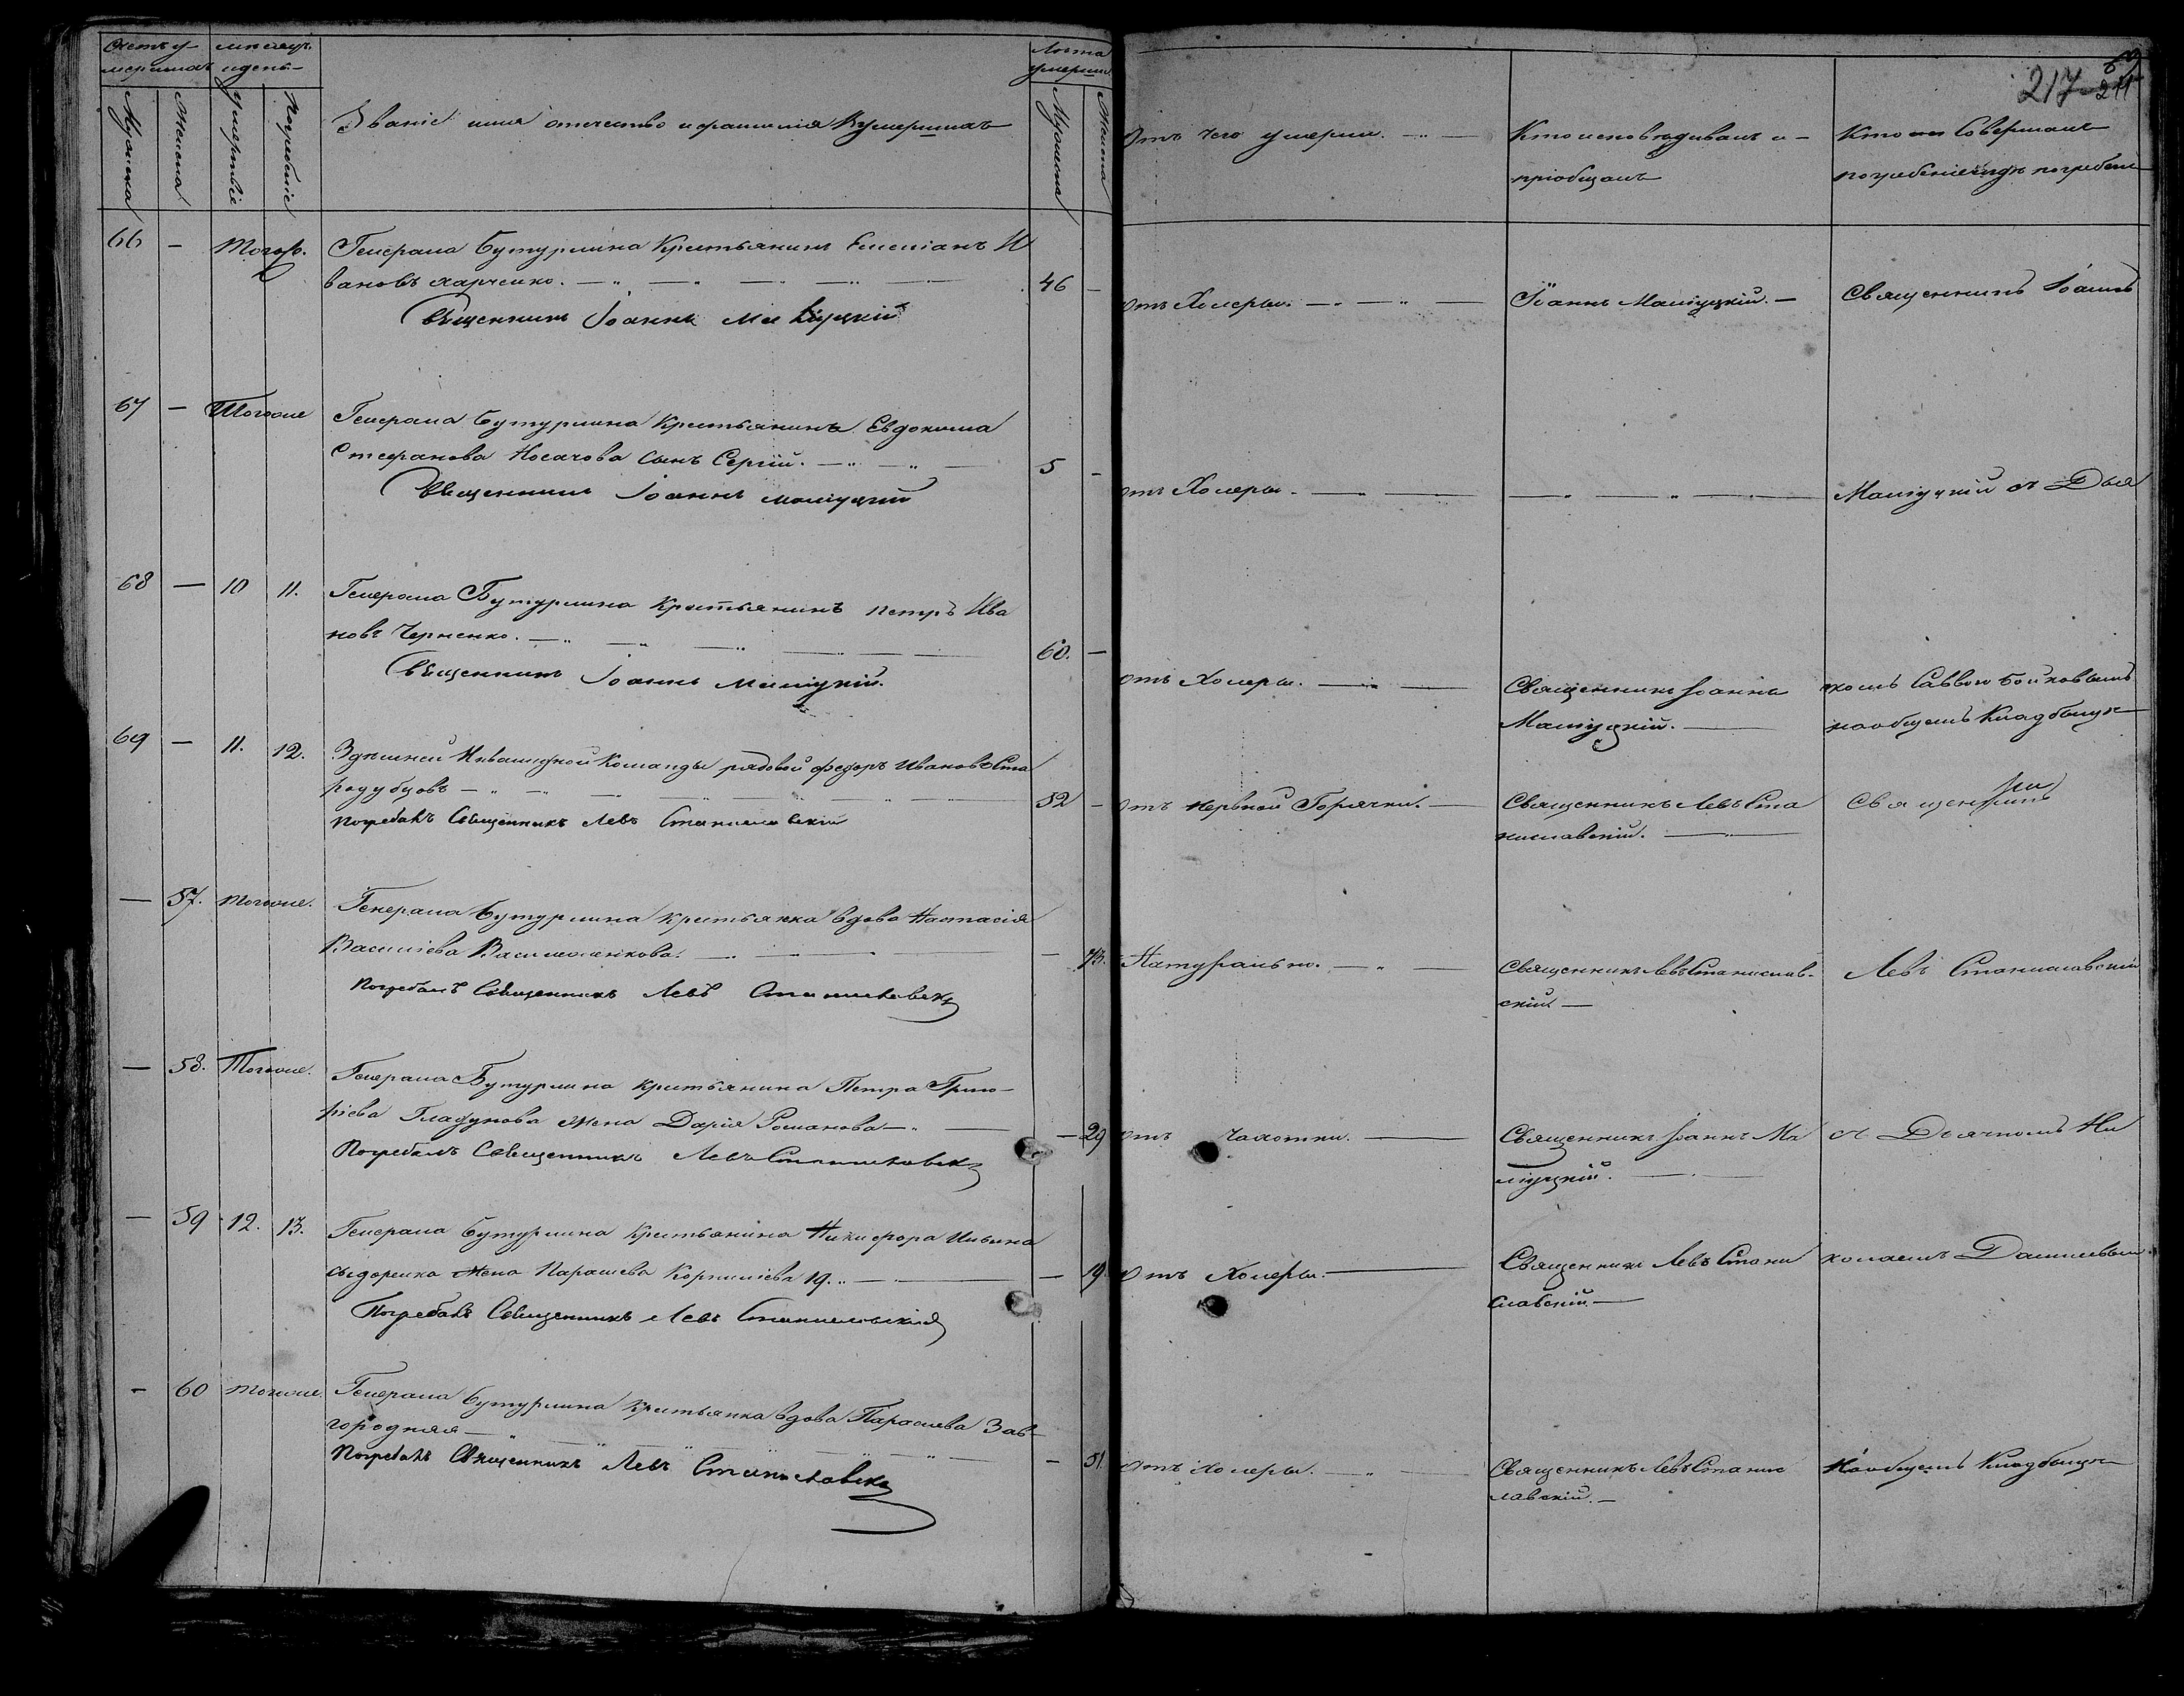 Счетъ умершихъ
месяцъ и день
Мужеска
Женска
Умертвіе
Погребеніе
Званіе имя отечество и фамилія Кумершихъ
Лета умерши
Мужеска
Женска
Отъ чего умерли.
Кто исповѣдивалъ и
пріобщалъ
Кто Совершалъ
погребеніе и гдѣ погребен
217 211
66 — Тогож.
Генерала Бутурлина Крестьянинъ Емеліанъ И
вановъ Харченко. 46 —
Священникъ Іоаннъ Маліуцкій
Отъ Холеры.
Іоаннъ Маліуцкій. —
Священникъ Іоаннъ
67 — Тогоже
Генерала Бутурлина Крестьянина Евдокима
Стефанова Носачова сынъ Сергій. 5 —
Священникъ Іоаннъ Маліуцкій
Отъ Холеры.
Маліуцкій съ Дья
68 — 10 11.
Генерала Бутурлина Крестьянинъ Петръ Ива
новъ Черненко. 60. —
Священникъ Іоаннъ Маліуцкій.
Отъ Холеры.
Священникъ Іоаннъ
Маліуцкій.
комъ Саввою Бойковымъ
на общемъ Кладбищѣ
69 — 11. 12.
Здѣшней Инвалидной Команды рядовой Федоръ Ивановъ Ста
родубцовъ 52 —
Погребалъ Священникъ Левъ Станиславскій
Отъ Нервной Горячки.
Священникъ Левъ Ста
ниславскій.
Священникъ
— 57. Тогоже.
Генерала Бутурлина Крестьянка вдова Настасія
Василіева — 73.
Погребалъ Священникъ Левъ Станиславскій
Натурально.
Священникъ Левъ Станислав-
скій —
Левъ Станиславскій
— 58. Тогоже.
Генерала Бутурлина Крестьянина Петра Григо-
ріева Гладунова Жена Дарія Романова — 29
Погребалъ Священникъ Левъ Станиславскій
Отъ Чахотки.
Священникъ Іоаннъ Ма
ліуцкій.
съ Дьячкомъ Ни
— 59 12. 13.
Генерала Бутурлина Крестьянина Никифора Ильина
Сыдоренка Жена Параскева Корниліева 19. — 19.
Погребалъ Священникъ Левъ Станиславскій
Отъ Холеры.
Священникъ Левъ Стани
славскій. —
колаемъ Данилевым
— 60 Тогоже.
Генерала Бутурлина Крестьянка вдова Параскева Зав-
городняя — 51.
Погребалъ Священникъ Левъ Станиславскій
Отъ Холеры.
Священникъ Левъ Станис
лавскій. —
На общемъ Кладбищѣ